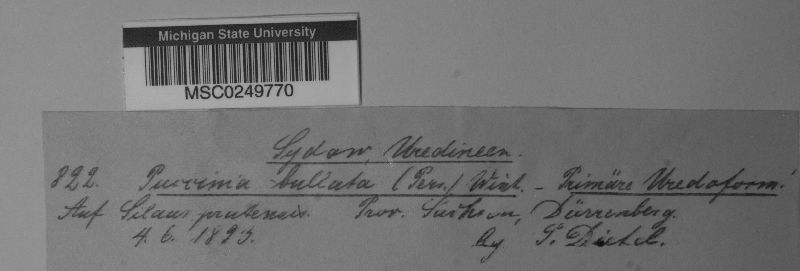 Michigan State University
MSC0249770
Sydow, Uredineen.
822. Puccinia bullata (Pers.) Wint. - Primäre Uredoform!
Auf Silaus pratensis. Prov. Sachsen, Dürrenberg.
4. 6. 1893. P. Dietel.